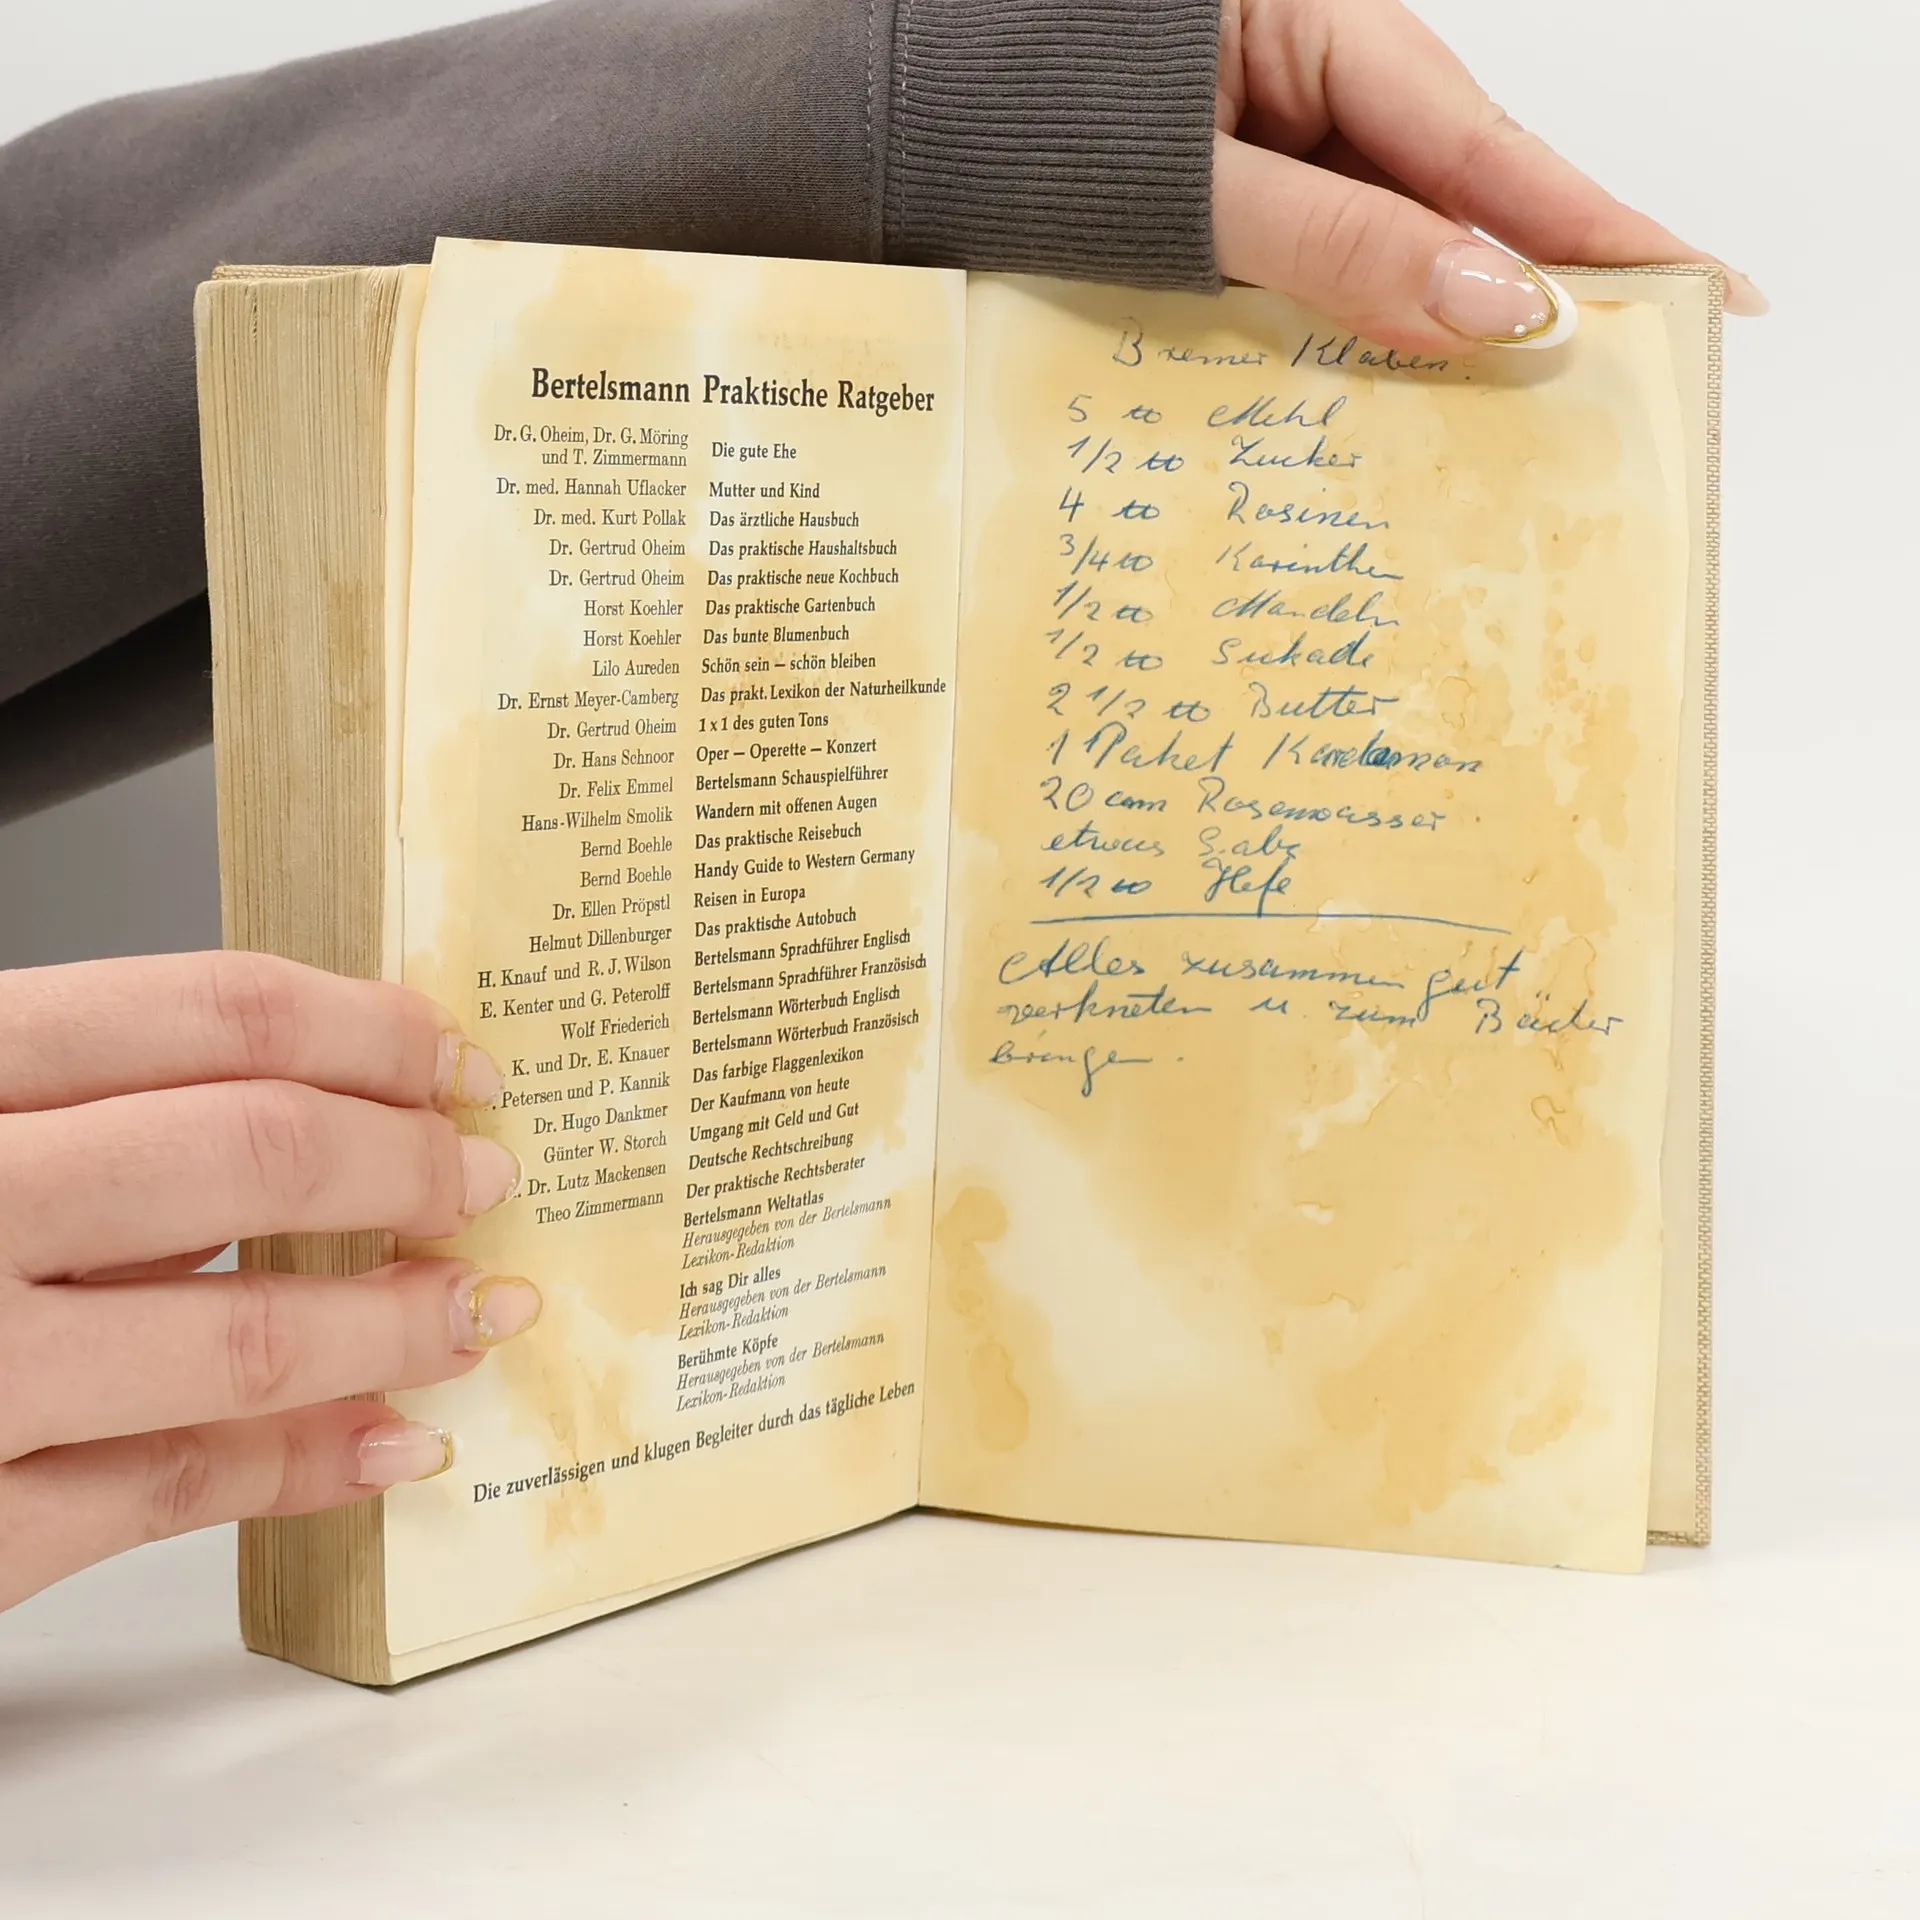 Bertelsmann Praktische Ratgeber
Dr. G. Oheim, Dr. G. Möring
und T. Zimmermann Die gute Ehe
Dr. med. Hannah Uflacker Mutter und Kind
Dr. med. Kurt Pollak Das ärztliche Hausbuch
Dr. Gertrud Oheim Das praktische Haushaltsbuch
Dr. Gertrud Oheim Das praktische neue Kochbuch
Horst Koehler Das praktische Gartenbuch
Horst Koehler Das bunte Blumenbuch
Lilo Aureden Schön sein – schön bleiben
Dr. Ernst Meyer-Camberg Das prakt. Lexikon der Naturheilkunde
Dr. Gertrud Oheim 1 x 1 des guten Tons
Dr. Hans Schnoor Oper – Operette – Konzert
Dr. Felix Emmel Bertelsmann Schauspielführer
Hans-Wilhelm Smolik Wandern mit offenen Augen
Bernd Boehle Das praktische Reisebuch
Bernd Boehle Handy Guide to Western Germany
Dr. Ellen Pröpstl Reisen in Europa
Helmut Dillenburger Das praktische Autobuch
H. Knauf und R. J. Wilson Bertelsmann Sprachführer Englisch
E. Kenter und G. Peterolff Bertelsmann Sprachführer Französisch
Wolf Friederich Bertelsmann Wörterbuch Englisch
K. und Dr. E. Knauer Bertelsmann Wörterbuch Französisch
Petersen und P. Kannik Das farbige Flaggenlexikon
Dr. Hugo Dankmer Der Kaufmann von heute
Günter W. Storch Umgang mit Geld und Gut
Dr. Lutz Mackensen Deutsche Rechtschreibung
Theo Zimmermann Der praktische Rechtsberater
Bertelsmann Weltatlas
Herausgegeben von der Bertelsmann
Lexikon-Redaktion
Ich sag Dir alles
Herausgegeben von der Bertelsmann
Lexikon-Redaktion
Berühmte Köpfe
Herausgegeben von der Bertelsmann
Lexikon-Redaktion
Die zuverlässigen und klugen Begleiter durch das tägliche Leben
Bremer Klaben:
5 ℔ Mehl
1/2 ℔ Zucker
4 ℔ Rosinen
3/4 ℔ Korinthen
1/2 ℔ Mandeln
1/2 ℔ Sukade
2 1/2 ℔ Butter
1 Paket Kardamon
20 ccm Rosenwasser
etwas Salz
1/2 ℔ Hefe
Alles zusammen gut
verkneten u. zum Bäcker
bringen.